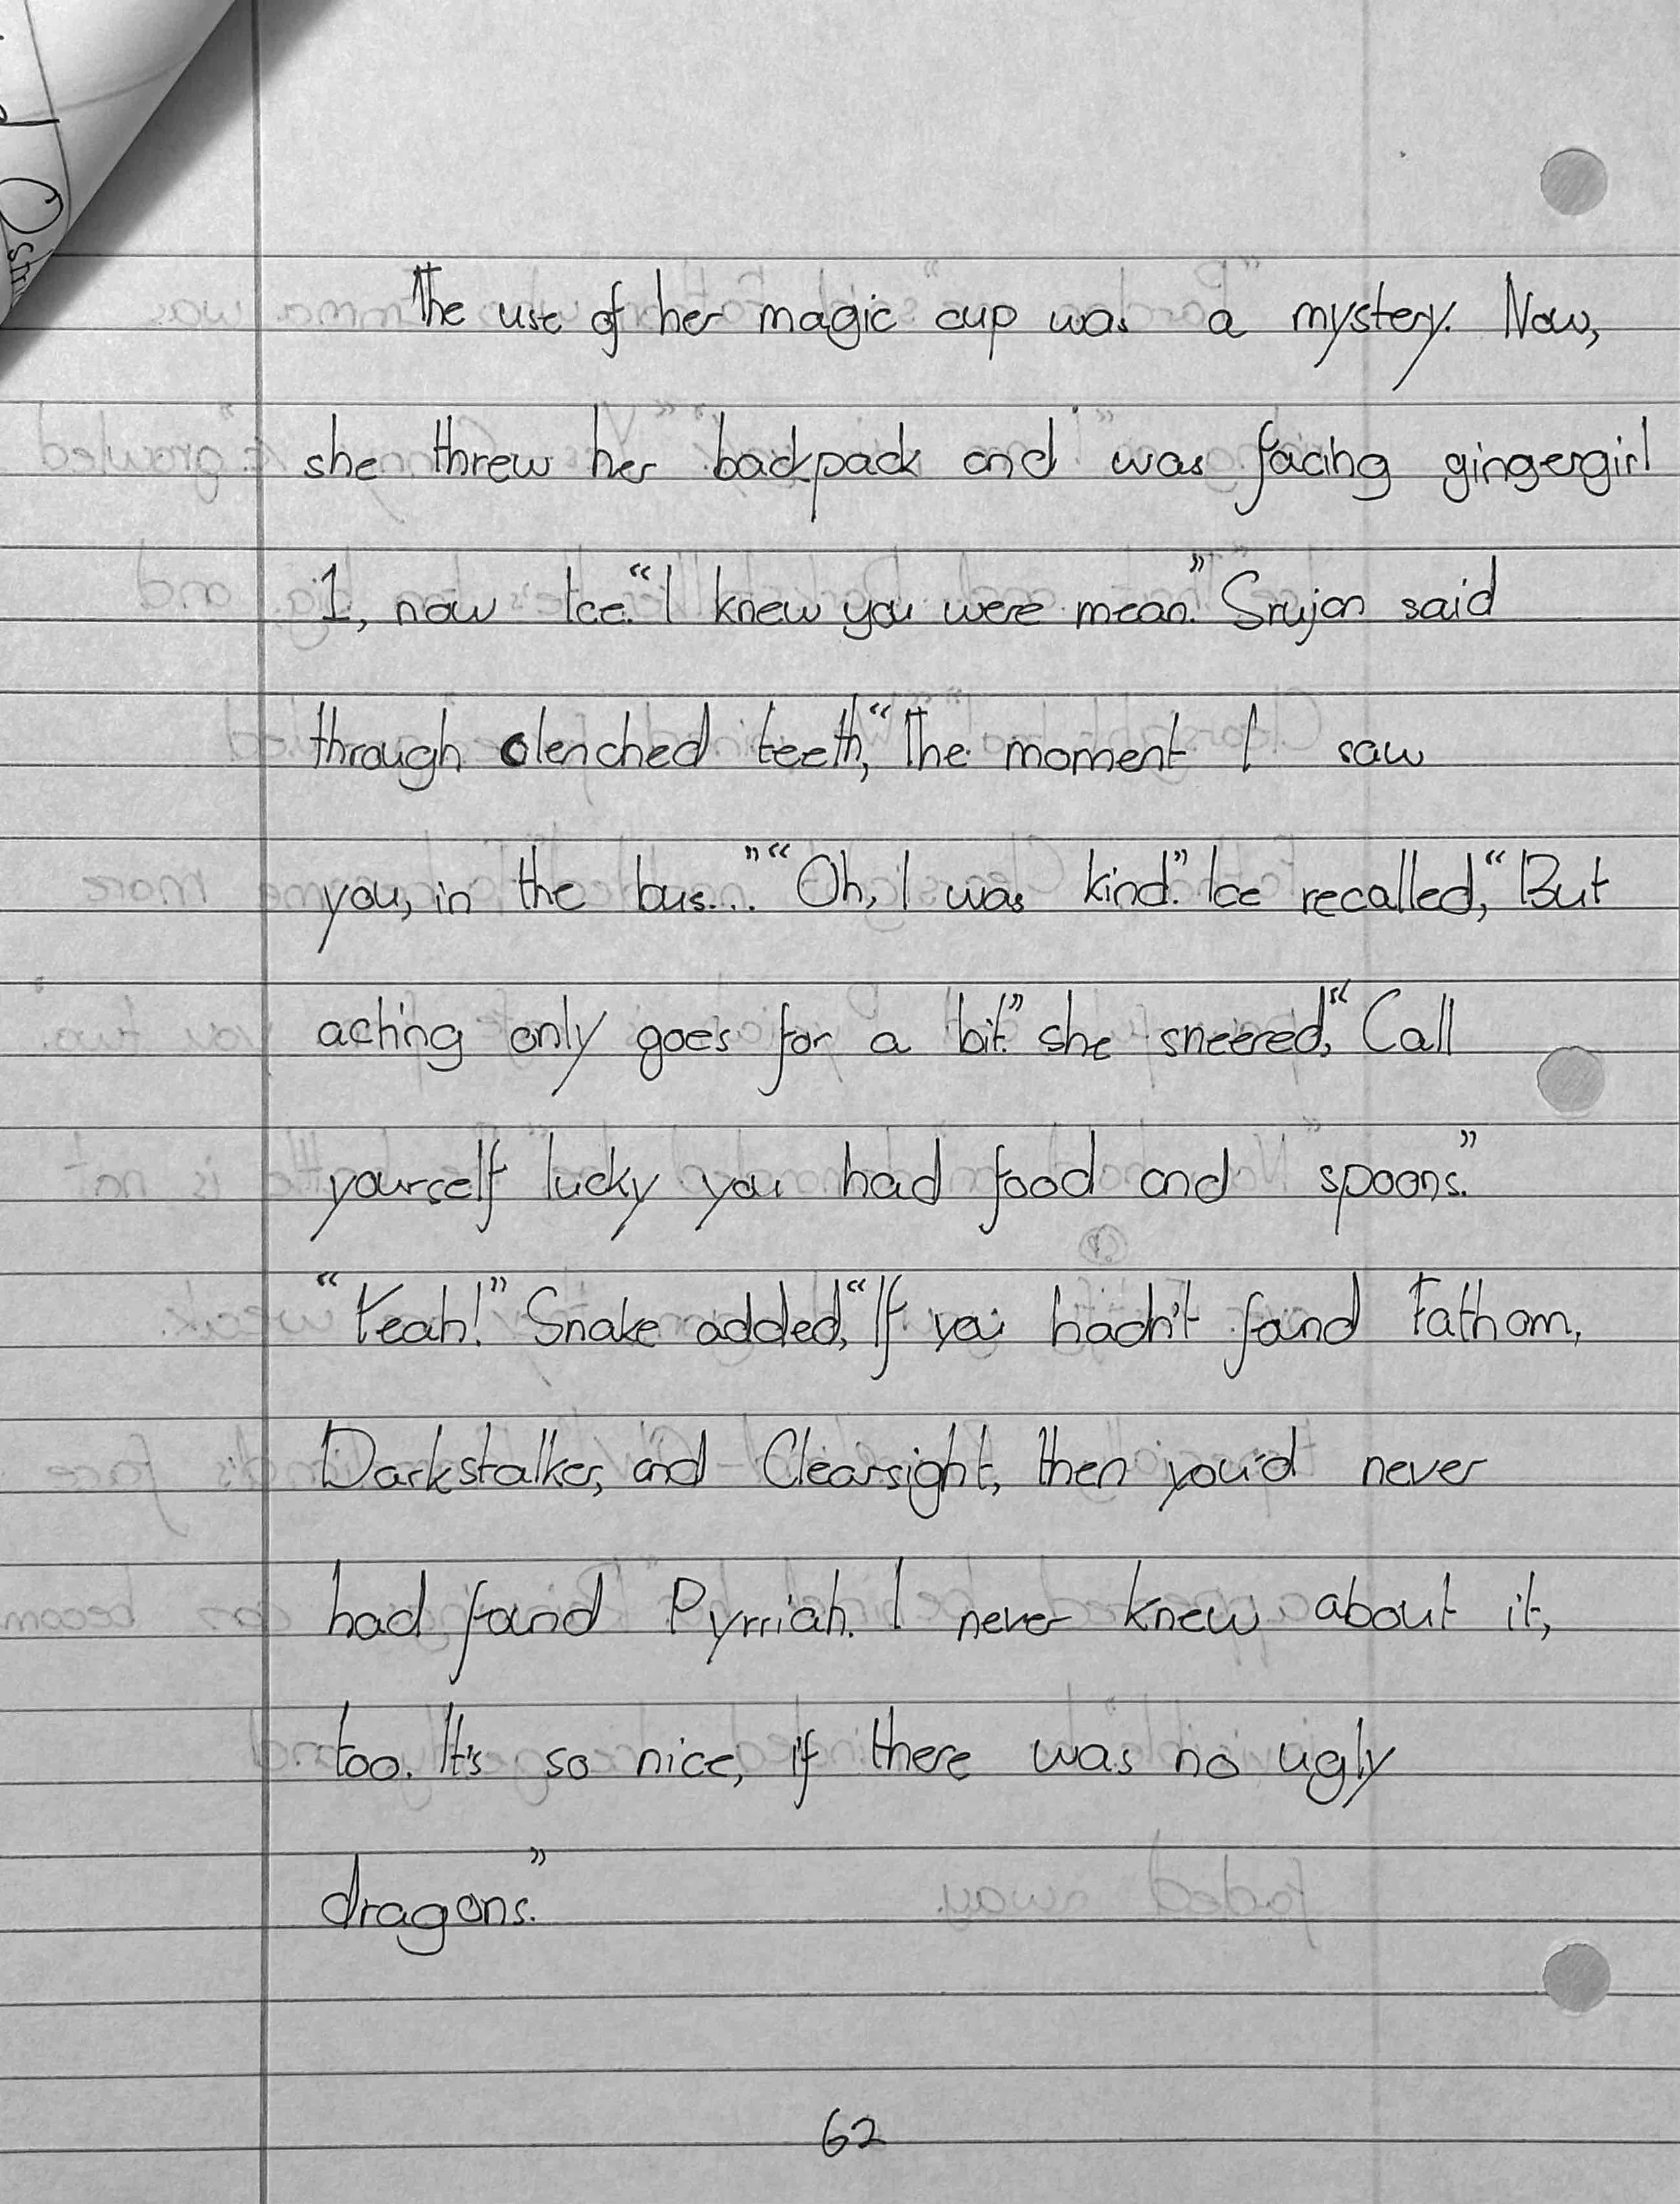 The use of her magic cup was a mystery. Now,
she threw her backpack and was facing gingergirl
1, now Ice. “I knew you were mean.” Srujan said
through clenched teeth, “The moment I saw
you, in the bus...” “Oh, I was kind.” Ice recalled, “But
acting only goes for a bit.” she sneered, “Call
yourself lucky you had food and spoons.”
“Yeah!” Snake added, “If you hadn't found Fathom,
Darkstalker, and Clearsight, then you'd never
had found Pyrriah. I never knew about it,
too. It's so nice, if there was no ugly
dragons.”
62